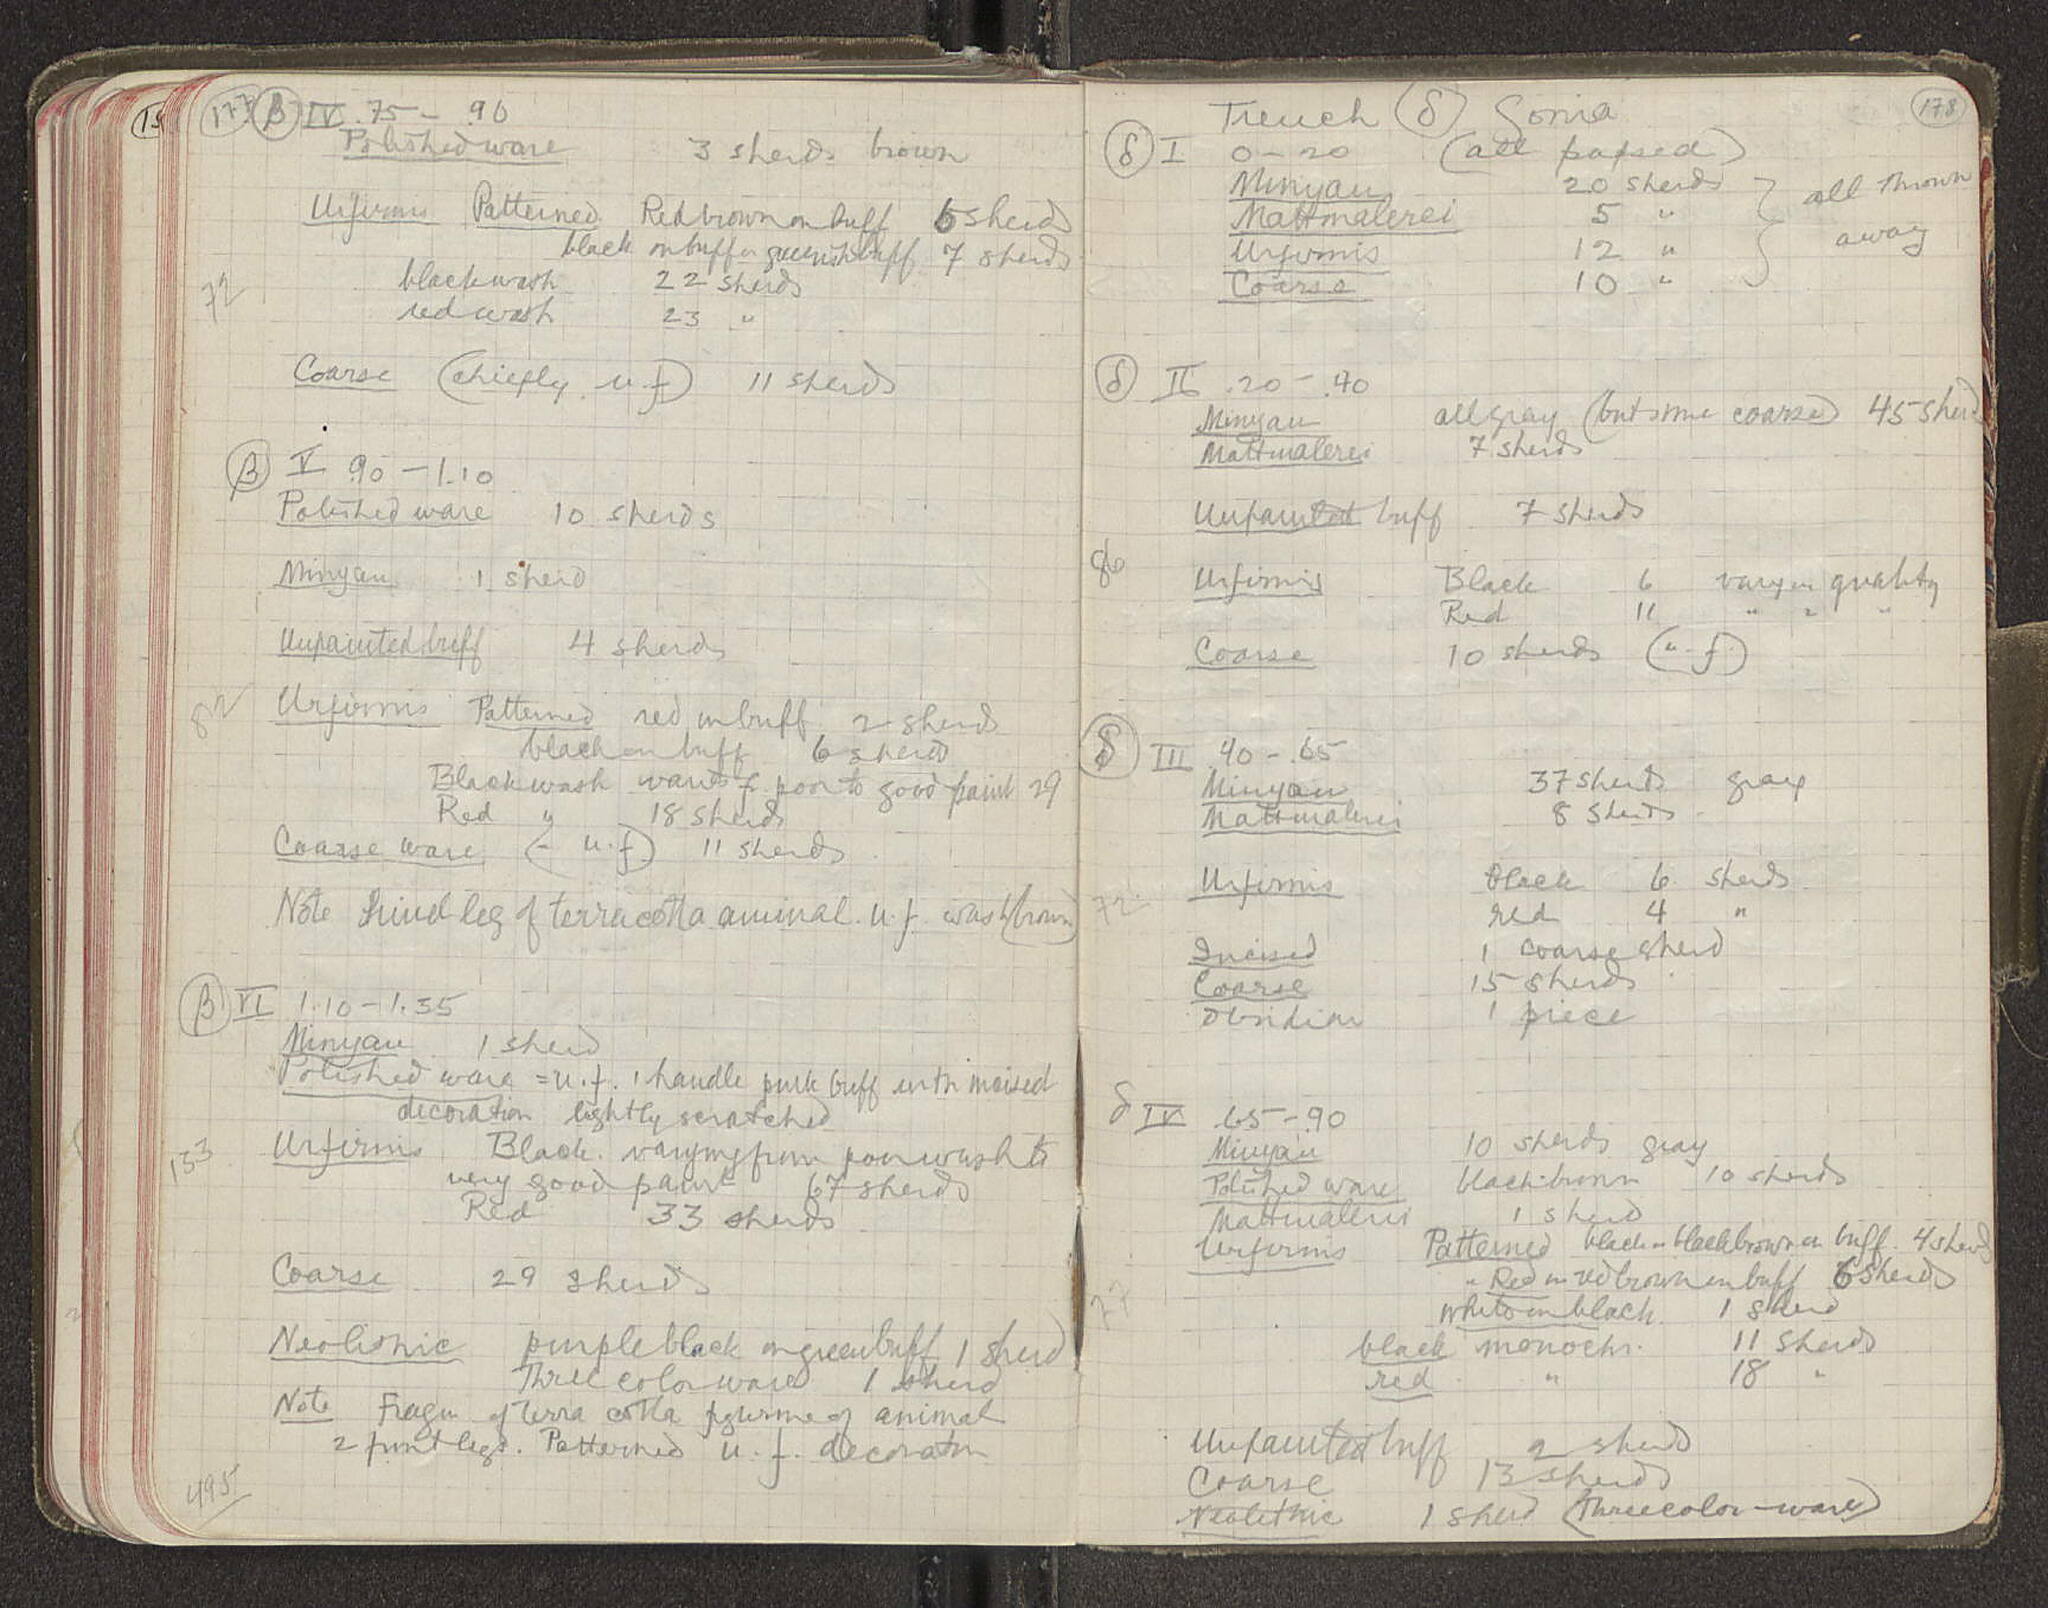 177 β IV .75 – .90
Polished ware 3 sherds brown
Urfirnis Patterned Red brown on buff 6 sherds
black on buff or greenish buff 7 sherds
72
black wash 22 sherds
red wash 23 "
Coarse (chiefly u.f) 11 sherds
β V .90 – 1.10
Polished ware 10 sherds
Minyan 1 sherd
Unpainted buff 4 sherds
82
Urfirnis Patterned red on buff 2 sherds
black on buff 6 sherds
Black wash poor to good paint 29
Red " 18 sherds
Coarse ware (– u.f) 11 sherds
Note hind leg of terracotta animal. u.f. wash (brown)
β VI 1.10 – 1.35
Minyan 1 sherd
Polished ware = u.f. 1 handle pink buff with incised
decoration lightly scratched
133
Urfirnis Black. varying from poor wash to
very good paint 67 sherds
Red 33 sherds
Coarse 29 sherds
Neolithic purple black on green buff 1 sherd
Three color ware 1 sherd
Note Fragm of terra cotta figurine of animal
2 front legs. Patterned u.f. decoration
495
178
Trench δ Gonia
δ I 0 – 20 (all passed)
Minyan 20 sherds
Mattmalerei 5 "
Urfirnis 12 "
Coarse 10 "
all thrown
away
δ II .20 – .40
Minyan all gray (but some coarse) 45 sherds
Mattmalerei 7 sherds
Unpainted buff 7 sherds
86
Urfirnis Black 6 vary in quality
Red 11 " " "
Coarse 10 sherds (u.f.)
δ III .40 – .65
Minyan 37 sherds gray
Mattmalerei 8 sherds
72
Urfirnis black 6 sherds
red 4 "
Incised 1 coarse sherd
Coarse 15 sherds
Obsidian 1 piece
δ IV .65 – .90
Minyan 10 sherds gray
Polished ware black-brown 10 sherds
Mattmalerei 1 sherd
Urfirnis Patterned black or black brown on buff 4 sherds
" Red or red brown on buff 6 sherds
77
white on black 1 sherd
black monochr. 11 sherds
red " 18 "
Unpainted buff 2 sherds
Coarse 13 sherds
Neolithic 1 sherd (three color-ware)